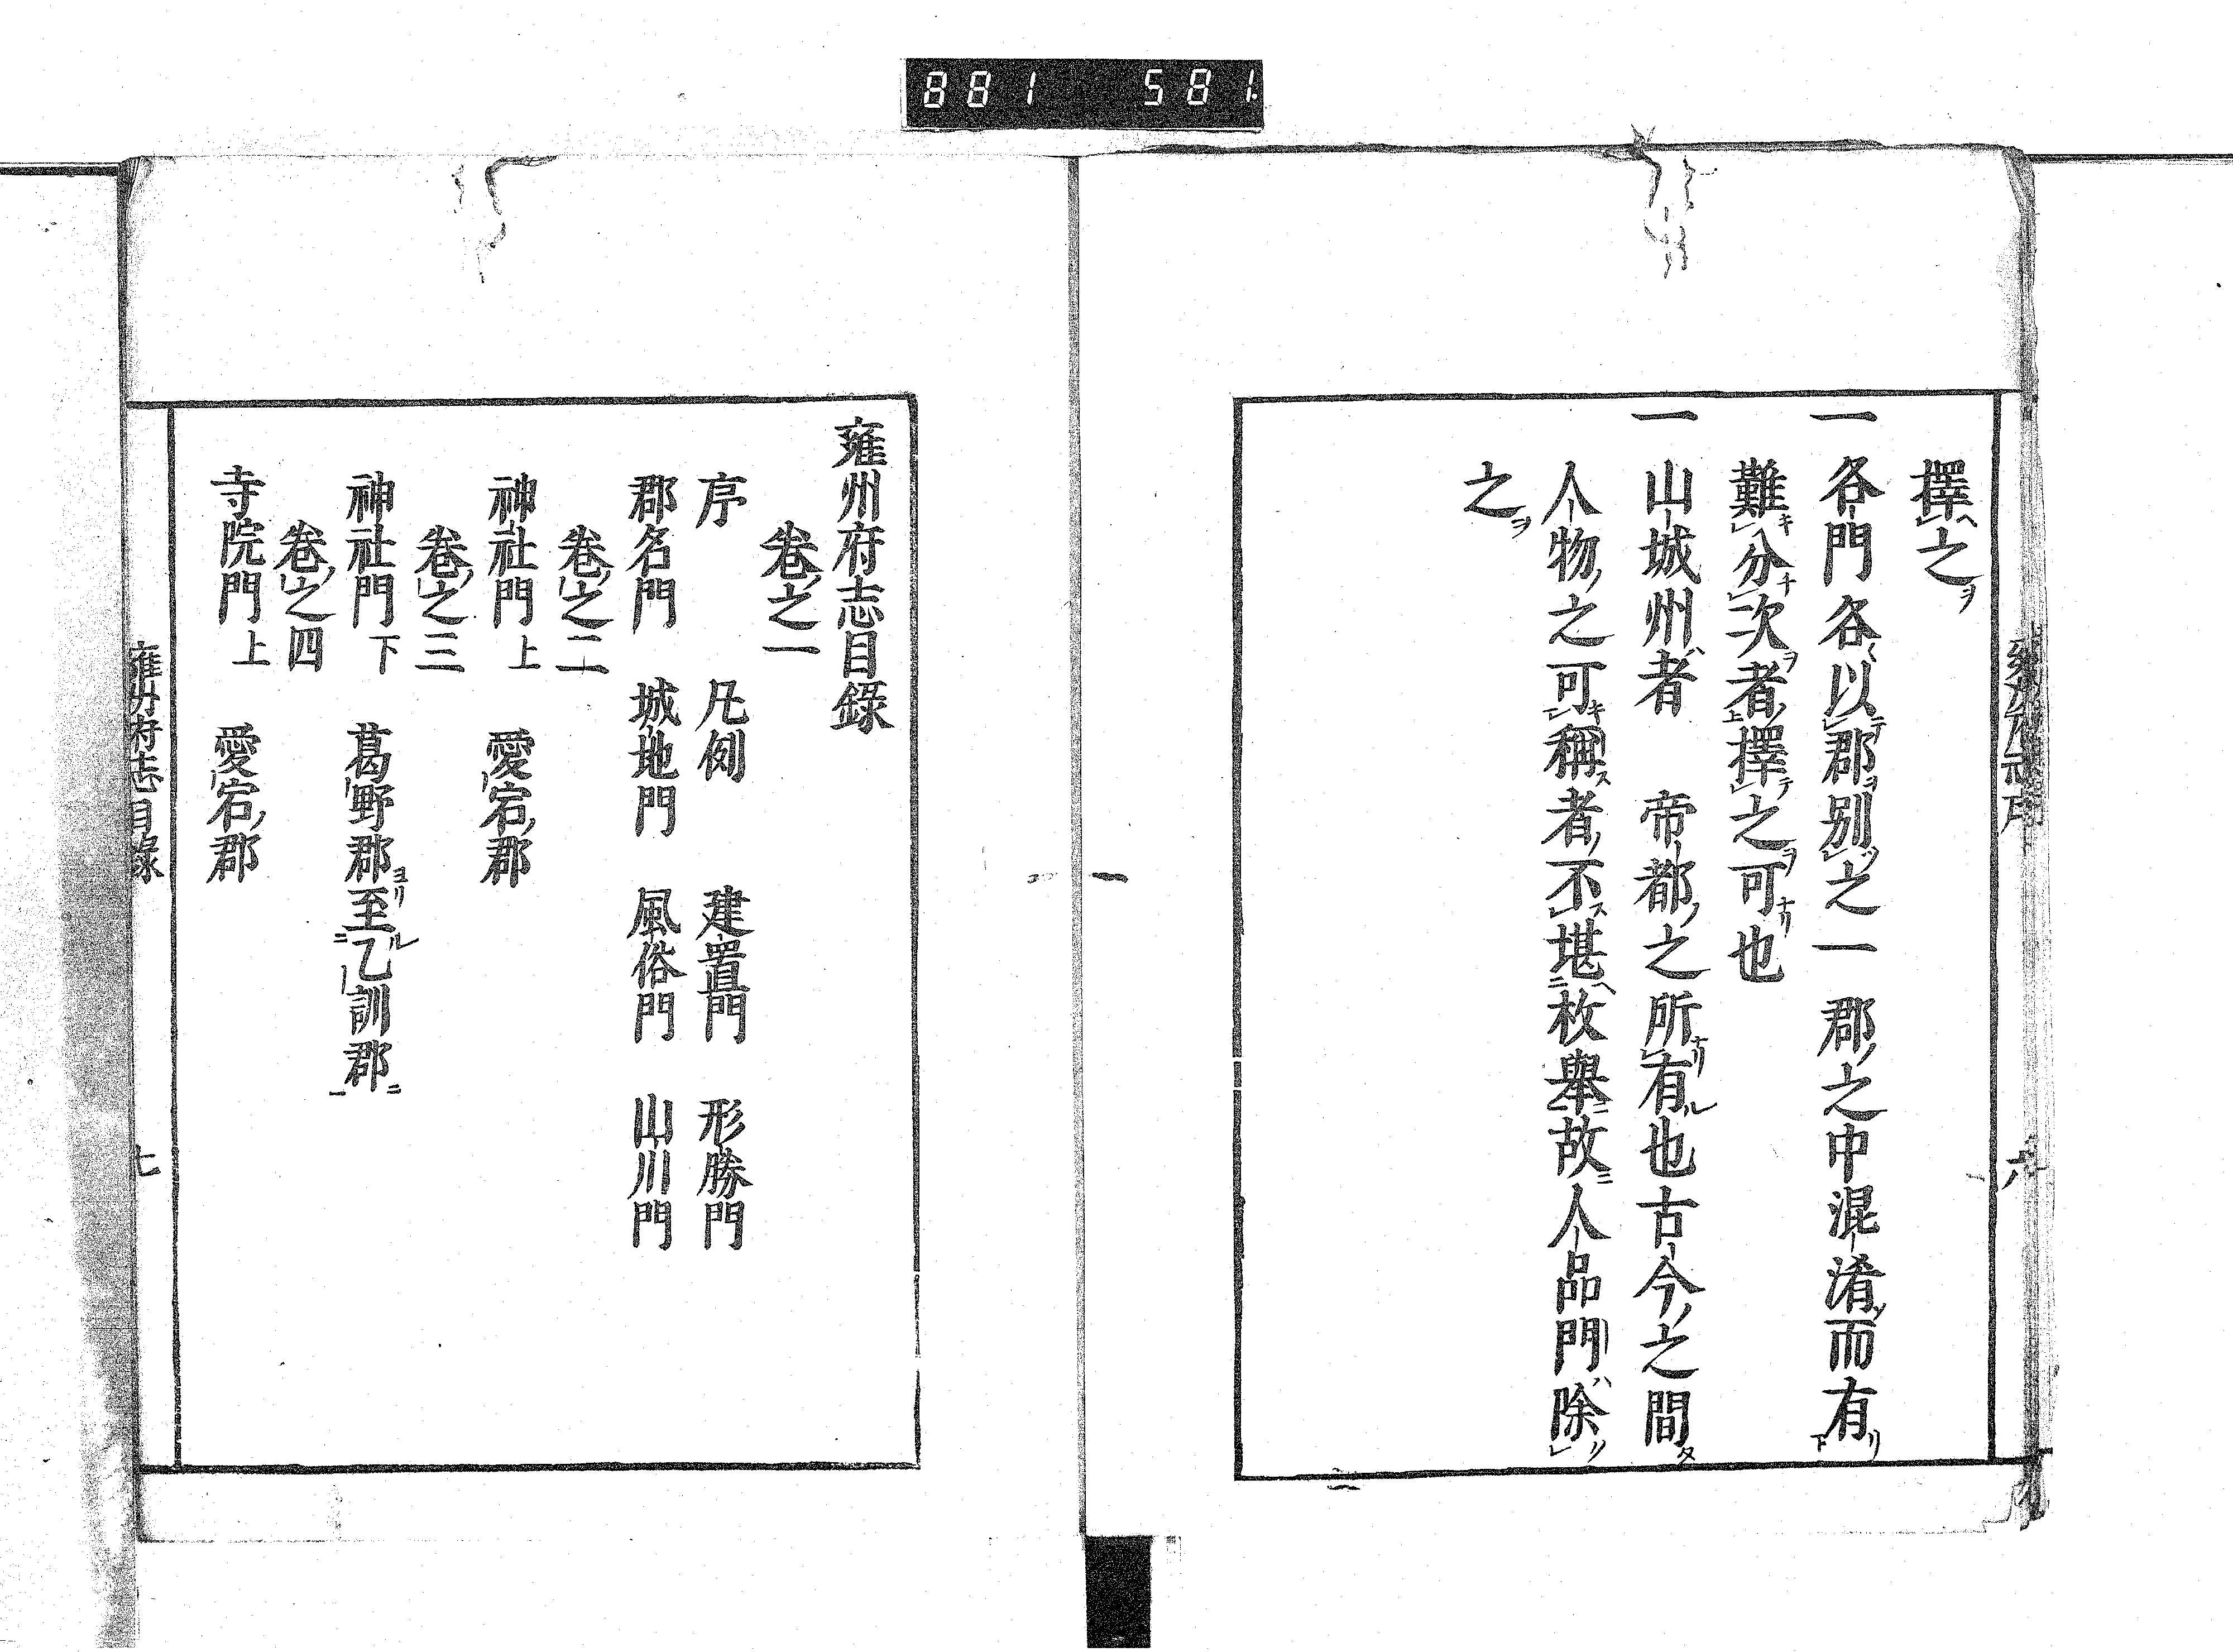 881 581
擇之
一各門各以郡別之一郡之中混淆而有
難分次者擇之可也
一山城州者 帝都之所有也古今之間
人物之可稱者不堪枚舉故人品門除
之
六
雍州府志目錄
巻之一
序 凡例 建置門 形勝門
郡名門 城地門 風俗門 山川門
巻之二
神社門上 愛宕郡
巻之三
神社門下 葛野郡ヨリ至ル乙訓郡ニ
巻之四
寺院門上 愛宕郡
雍州府志目錄 七